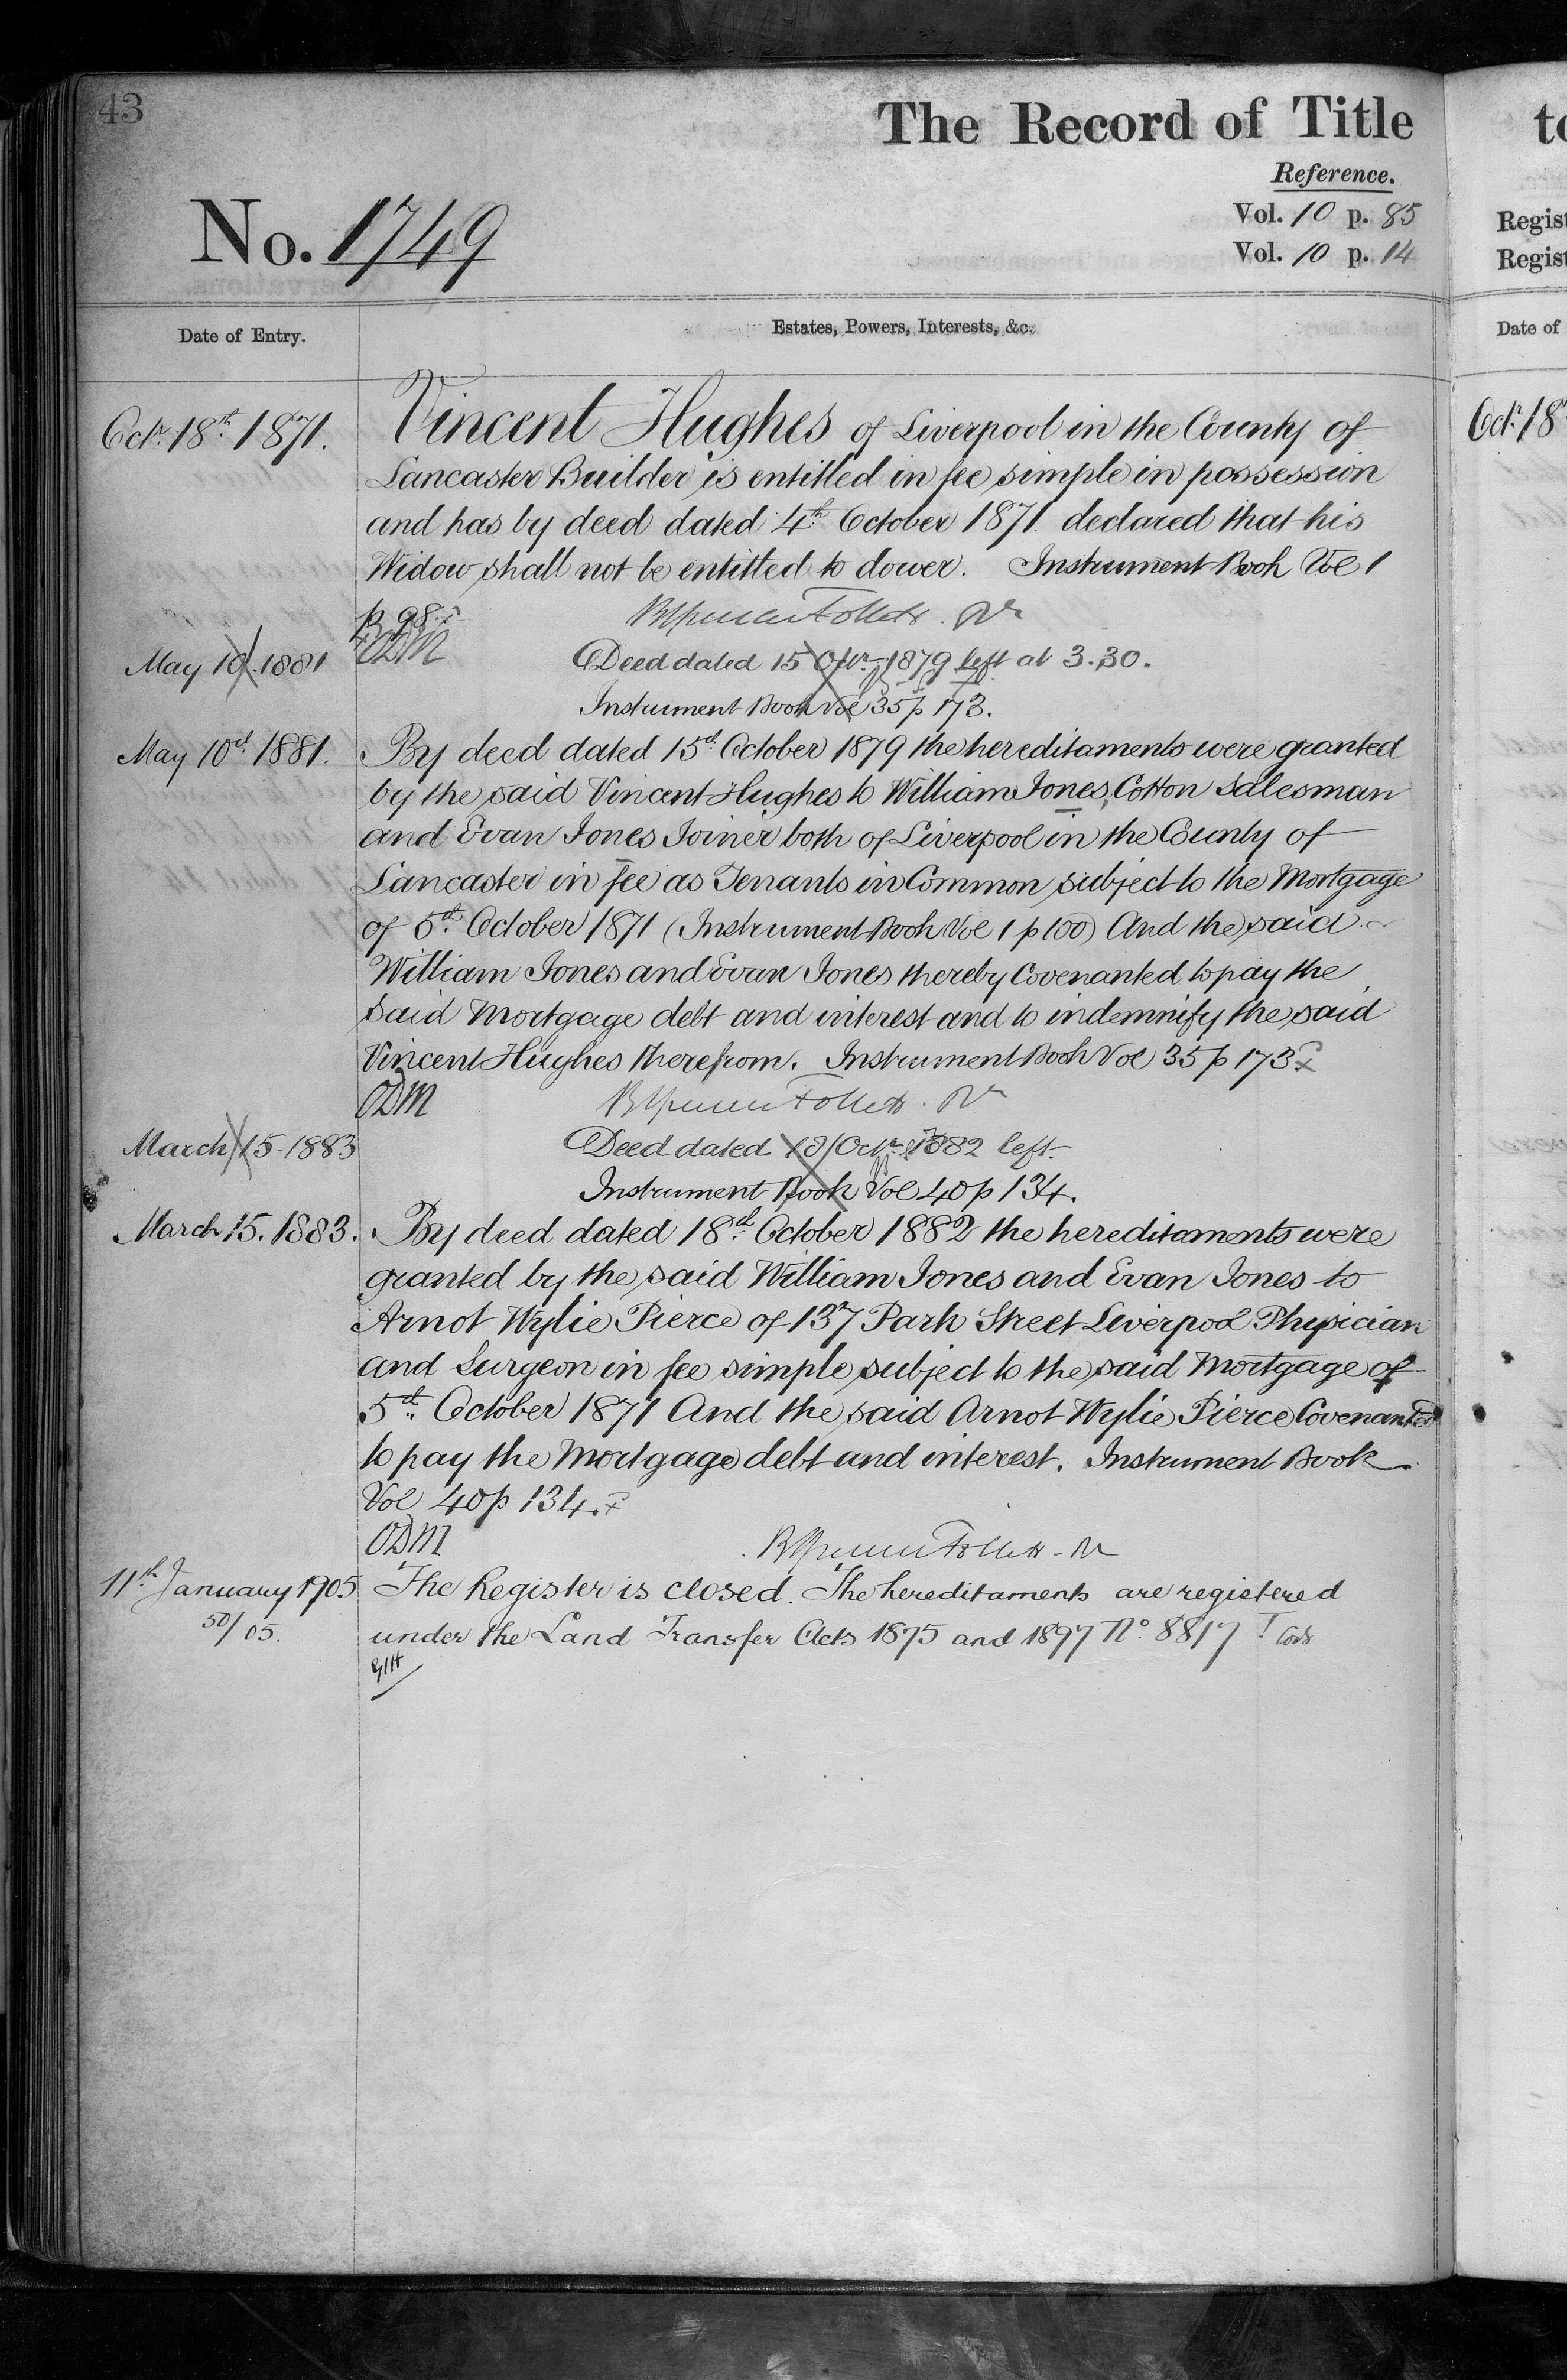 43
The Record of Title
Reference.
No. 1749
Vol. 10 p. 85
Vol. 10 p. 14
Date of Entry.
Estates, Powers, Interests, &c.
Octr. 18th 1871.
Vincent Hughes of Liverpool in the County of
Lancaster Builder is entitled in fee simple in possession
and has by deed dated 4th October 1871 declared that his
Widow shall not be entitled to dower. Instrument Book Vol 1
p 98.
ODM
May 10. 1881
Deed dated 15 Octr. 1879 left at 3.30.
Instrument Book Vol 35 p 173.
May 10th 1881.
By deed dated 15th October 1879 the hereditaments were granted
by the said Vincent Hughes to William Jones, Cotton Salesman
and Evan Jones Joiner both of Liverpool in the County of
Lancaster in fee as Tenants in Common subject to the Mortgage
of 5th October 1871 (Instrument Book Vol 1 p 100) And the said
William Jones and Evan Jones thereby Covenanted to pay the
said Mortgage debt and interest and to indemnify the said
Vincent Hughes therefrom. Instrument Book Vol 35 p 173.
ODM
March 15. 1883
Deed dated 18 Octr. 1882 left.
Instrument Book Vol 40 p 134.
March 15. 1883.
By deed dated 18th October 1882 the hereditaments were
granted by the said William Jones and Evan Jones to
Arnot Wylie Pierce of 137 Park Street Liverpool Physician
and Surgeon in fee simple subject to the said Mortgage of
5th October 1871 And the said Arnot Wylie Pierce Covenanted
to pay the Mortgage debt and interest. Instrument Book
Vol 40 p 134.
ODM
11th January 1905
50/05.
The Register is closed. The hereditaments are registered
under the Land Transfer Acts 1875 and 1897 No. 8817
to
Regist
Regist
Date of
Octr. 18